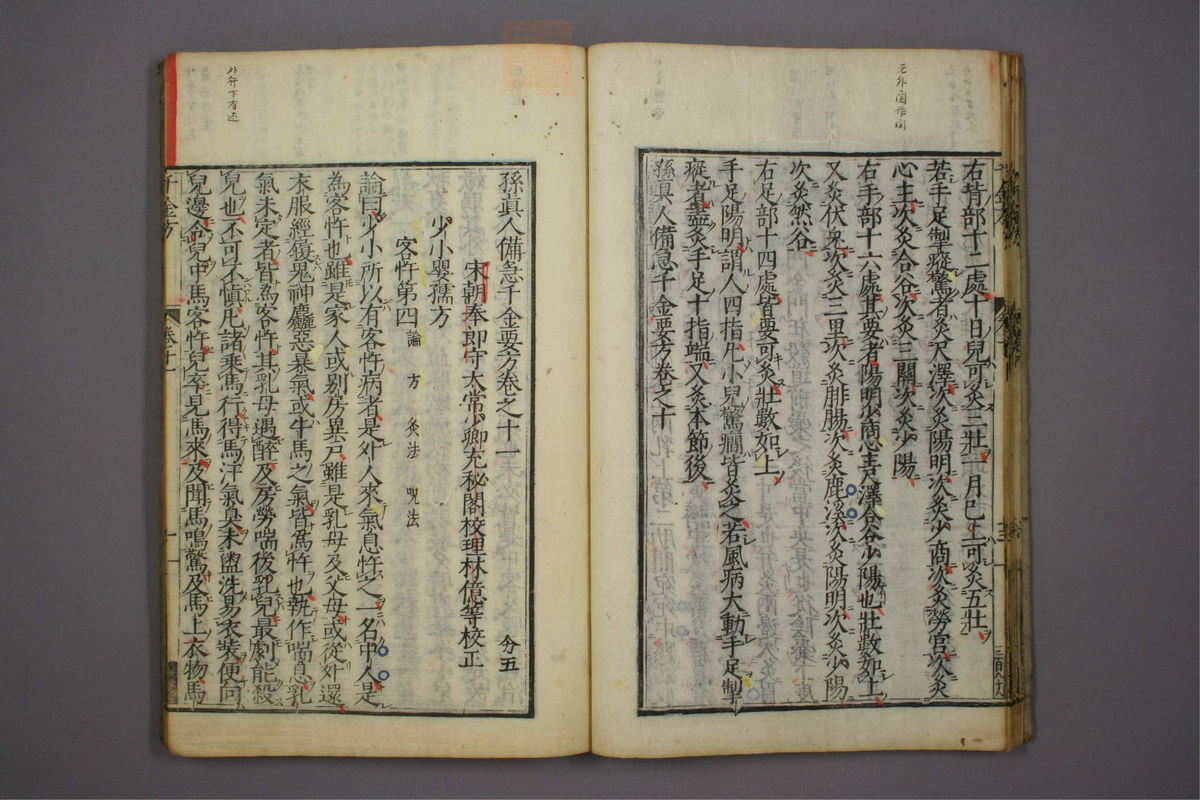 右背部十二處十日兒可灸三壯一月已上可灸五壯
若手足掣瘲驚者灸尺澤次灸陽明次灸少商次灸勞宮次灸
心主次灸合谷次灸三關次灸少陽
右手部十六處其要者陽明少商心主尺澤合谷少陽也壯數如上
又灸伏兔次灸三里次灸腓腸次灸鹿溪次灸陽明次灸少陽
次灸然谷
右足部十四處皆要可灸壯數如上
手足陽明謂人四指凡小兒驚癎皆灸之若風病大動手足掣
瘲者盡灸手足十指端又灸本節後
孫真人備急千金要方卷之十
孫真人備急千金要方卷之十一
分五
宋朝奉郎守太常少卿充秘閣校理林億等校正
少小嬰孺方
客忤第四 論 方 灸法 呪法
論曰少小所以有客忤病者是外人來氣息忤之一名中人是
為客忤也雖是家人或別房異戶雖是乳母及父母或從外還
衣服經履鬼神麤惡暴氣或牛馬之氣皆為忤也執作喘息乳
氣未定者皆為客忤其乳母遇醉及房勞喘後乳兒最劇能殺
兒也不可不慎凡諸乘馬行得馬汗氣臭未盥洗易衣裝便向
兒邊令兒中馬客忤兒卒見馬來及聞馬鳴驚及馬上衣物馬
千金方
卷十一
一